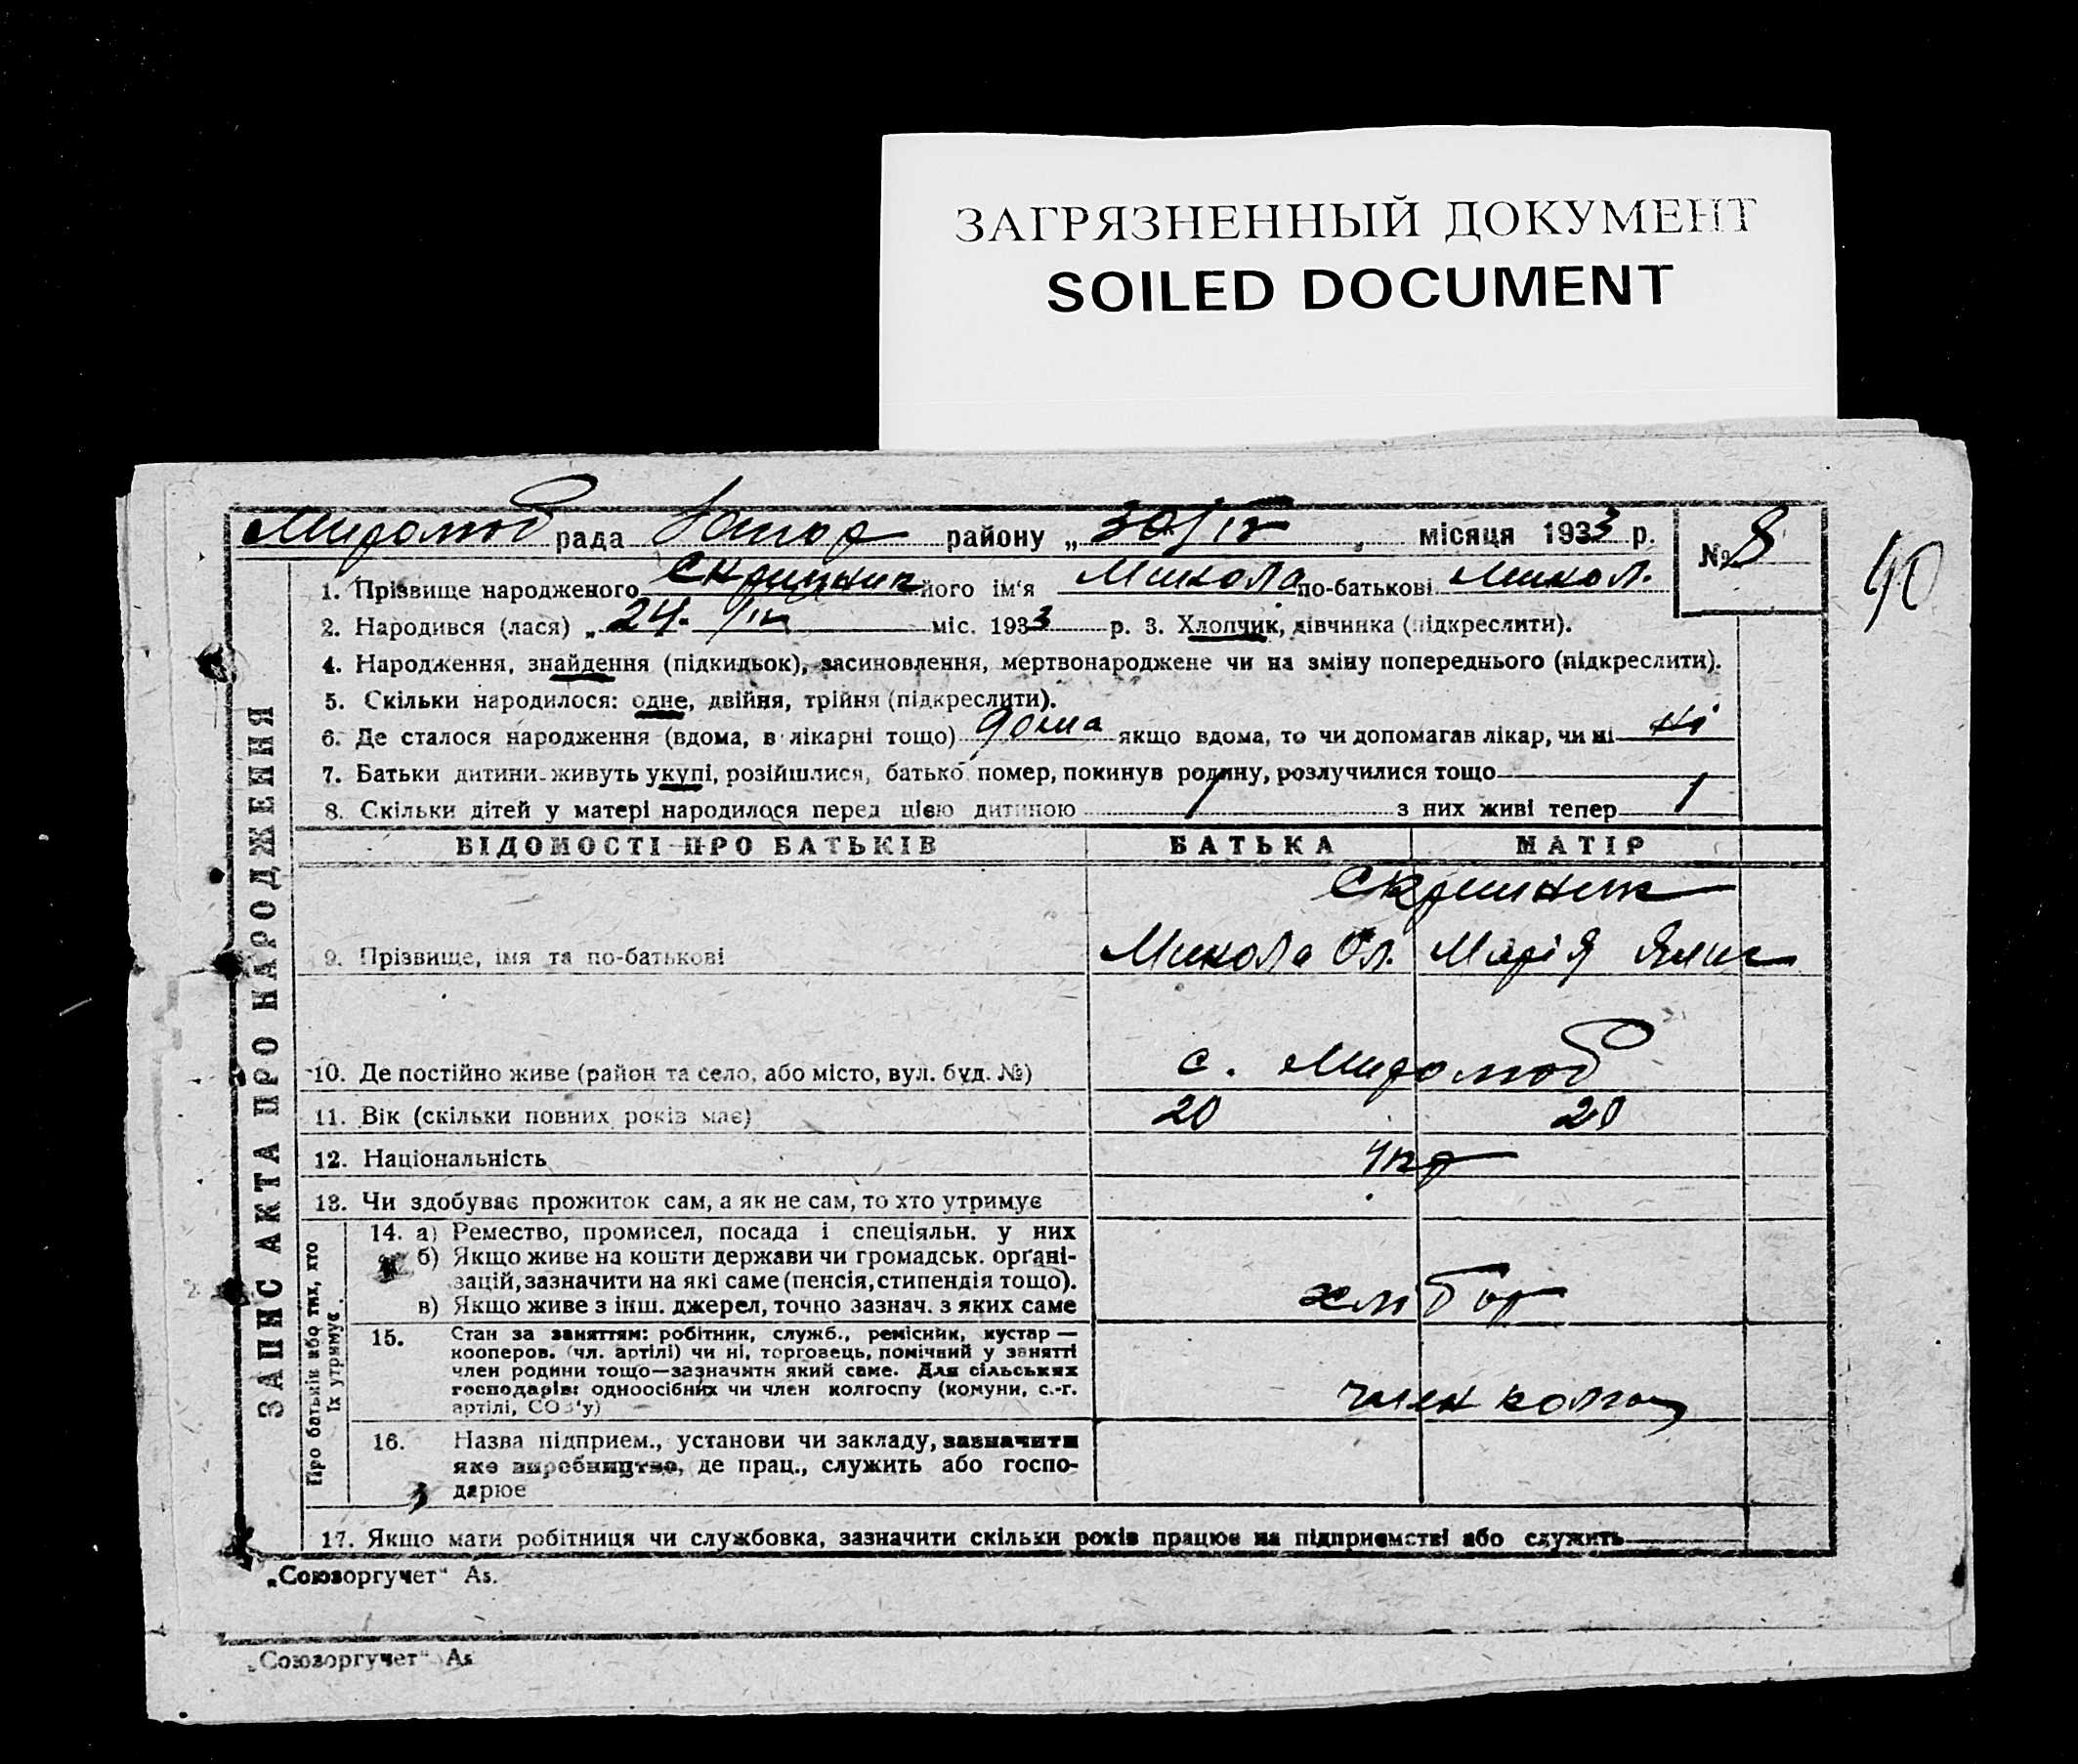 ЗАГРЯЗНЕННЫЙ ДОКУМЕНТ
SOILED DOCUMENT
рада району „ 30/IV “ місяця 1933 р.
№ 8
40
1. Прізвище народженого Скрипник його ім'я Микола по-батькові Микол.
2. Народився (лася) „ 24. IV міс. 1933 р. 3. Хлопчик, дівчинка (підкреслити).
4. Народження, знайдення (підкидьок), засиновлення, мертвонароджене чи на зміну попереднього (підкреслити).
5. Скільки народилося: одне, двійня, трійня (підкреслити).
6. Де сталося народження (вдома, в лікарні тощо) дома якщо вдома, то чи допомагав лікар, чи ні ні
7. Батьки дитини живуть укупі, розійшлися, батько помер, покинув родину, розлучилися тощо
8. Скільки дітей у матері народилося перед цією дитиною 1 з них живі тепер 1
ЗАПИС АКТА ПРО НАРОДЖЕННЯ
ВІДОМОСТІ ПРО БАТЬКІВ БАТЬКА МАТІР
Скрипник
9. Прізвище, імя та по-батькові Микола Ол. Марія
10. Де постійно живе (район та село, або місто, вул. буд. №) с.
11. Вік (скільки повних років має) 20 20
12. Національність укр
13. Чи здобуває прожиток сам, а як не сам, то хто утримує
Про батьків або тих, хто
їх утримує
14. а) Ремество, промисел, посада і спеціяльн. у них
б) Якщо живе на кошти держави чи громадськ. органі-
зацій, зазначити на які саме (пенсія, стипендія тощо).
в) Якщо живе з інш. джерел, точно зазнач. з яких саме
хлібор
15. Стан за заняттям: робітник, служб., ремісник, кустар —
кооперов. (чл. артілі) чи ні, торговець, помічний у занятті
член родини тощо—зазначити який саме. Для сільських
господарів: одноосібних чи член колгоспу (комуни, с.-г.
артілі, СОЗ'у)
член колгос
16. Назва підприєм., установи чи закладу, зазначити
яке виробництво, де прац., служить або госпо-
дарює
17. Якщо мати робітниця чи службовка, зазначити скільки років працює на підприємстві або служить
„Союзоргучет“ А5.
„Союзоргучет“ А5